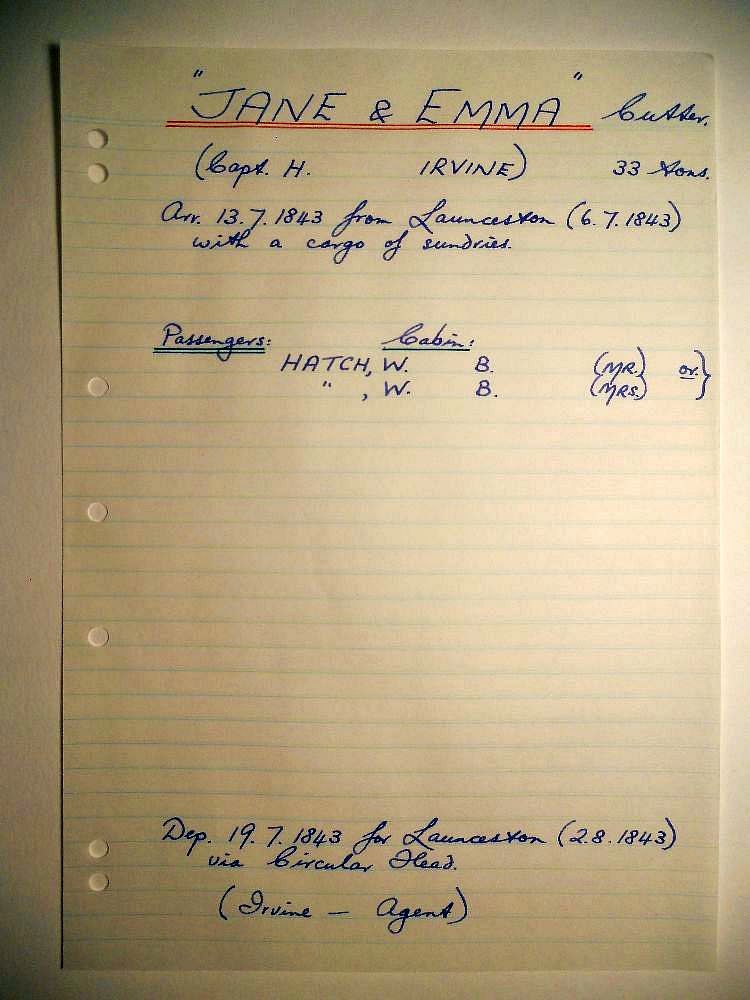 "JANE & EMMA" Cutter.
(Capt. H. IRVINE) 33 tons.
Arr. 13.7.1843 from Launceston (6.7.1843)
with a cargo of sundries.
Passengers: Cabin:
HATCH, W. B. (MR.) or.}
" , W. B. (MRS.)
Dep. 19.7.1843 for Launceston (2.8.1843)
via Circular Head.
(Irvine — Agent)